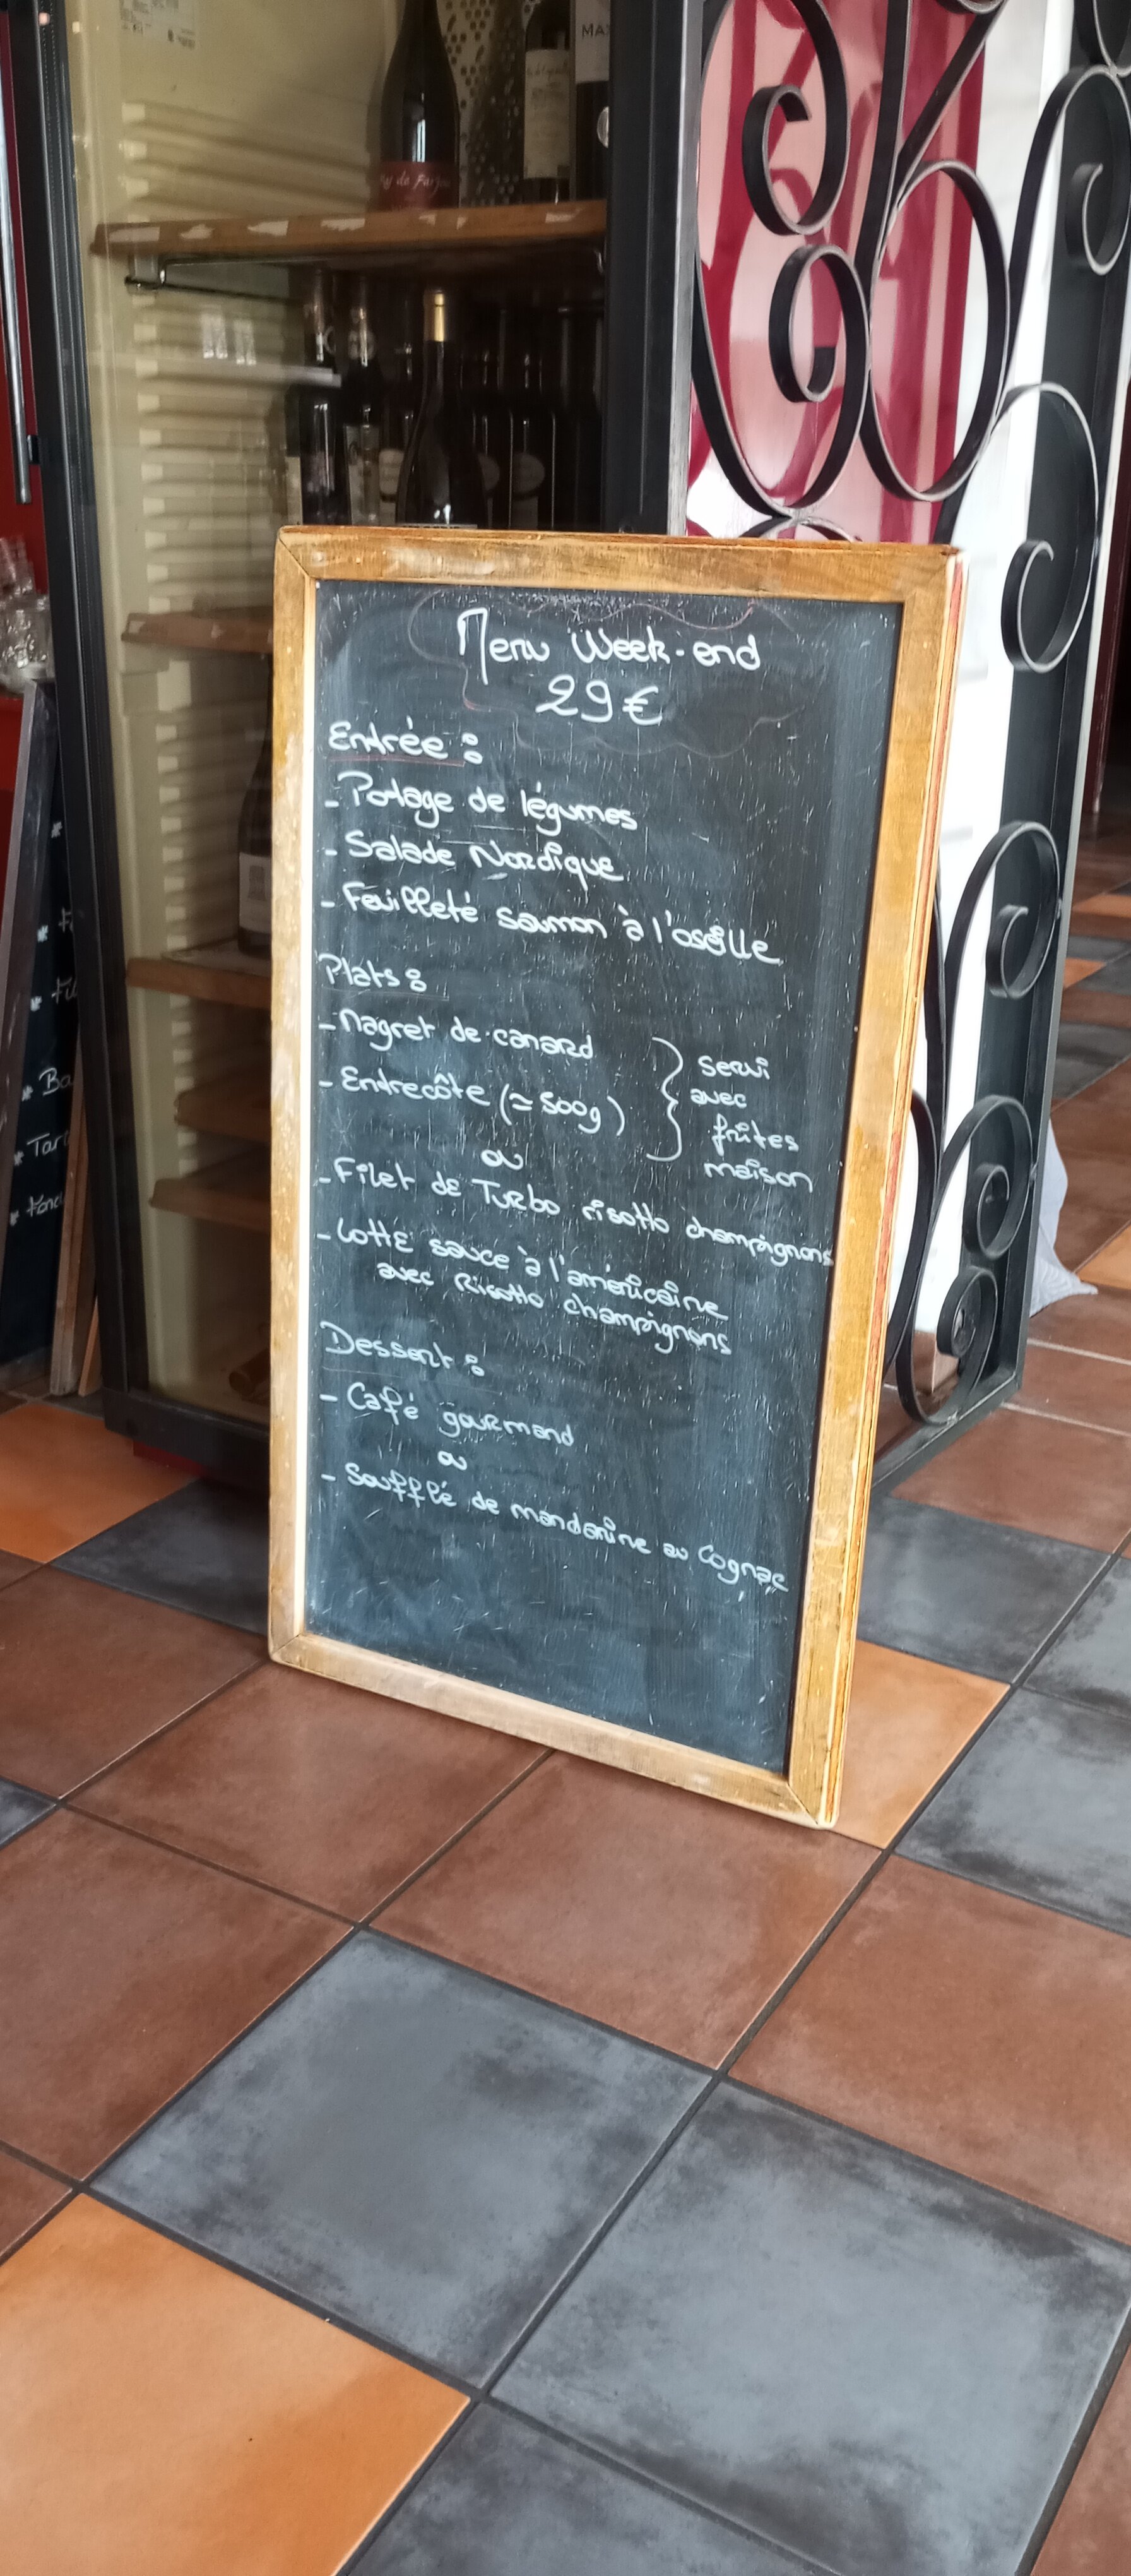 Menu Week-end
29€
Entrée :
- Potage de légumes
- Salade Nordique
- Feuilleté saumon à l'oseille
Plats :
- Magret de canard
- Entrecôte (≈ 500g)
} servi
avec
frites
maison
ou
- Filet de Turbo risotto champignons
- Lotte sauce à l'américaine
avec Risotto champignons
Dessert :
- Café gourmand
ou
- Soufflé de mandarine au Cognac
MAX
Ba
Tart